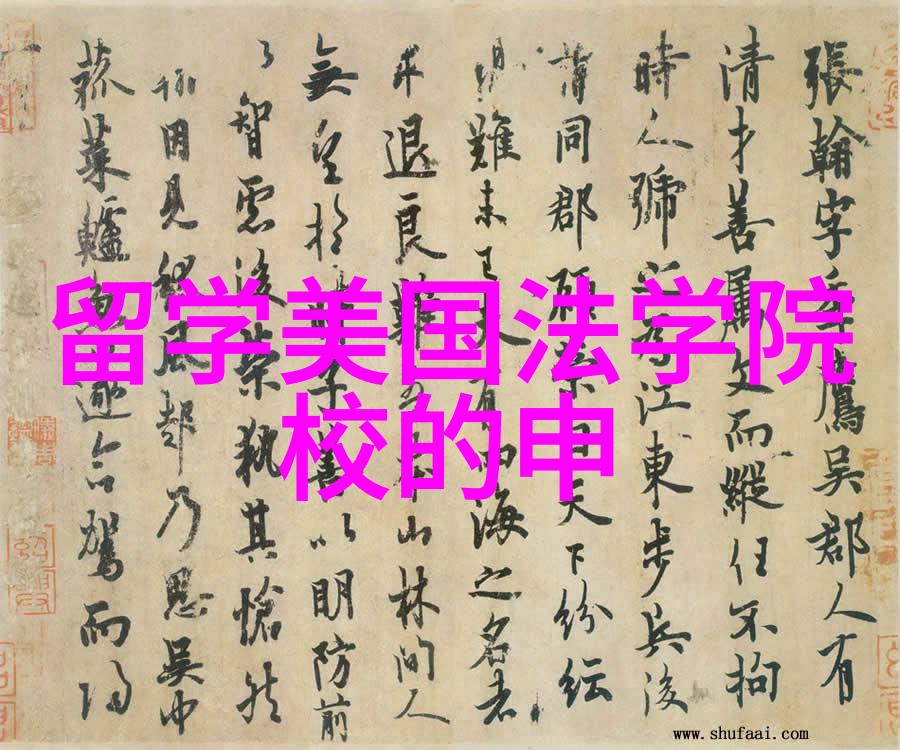 留学美国法学院
校的申
張翰字季鷹吳郡人有
清才善屬文而縱任不拘
時人號之為江東步兵後
謂同郡顧榮曰天下紛紜
難未已夫有四海之名者
求退良難吾本山林間人
無望於子善以明防前
智慮後榮執其愴然
翰因見秋風起乃思吳中
菰菜鱸魚遂命駕而歸
www.shufaai.com